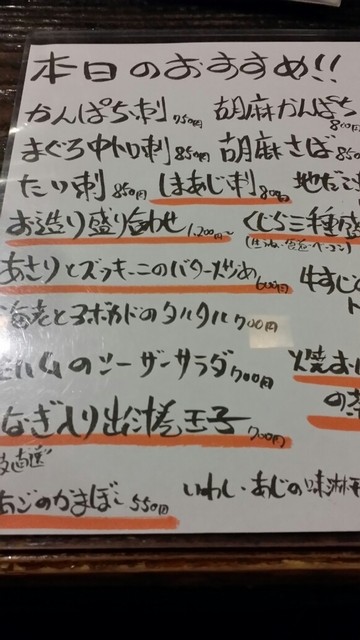 本日のおすすめ!!
かんぱち刺 750円 胡麻かんぱち 800円
まぐろ中トロ刺 850円 胡麻さば 850
たい刺 850円 はあじ刺 800円 地だこ
お造り盛り合わせ 1,200円~ くじら三種盛
あさりとズッキーニのバター炒め 600円 牛すじの
海老とアボカドのタルタル 700円
生ハムのシーザーサラダ 700円 焼おに
なぎ入り出汁巻玉子 700円 の
直送
あごのかまぼこ 550円 いわし・あじの味淋